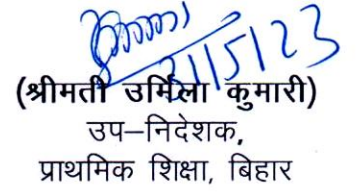 31/5/23
(श्रीमती उर्मिला कुमारी)
उप–निदेशक,
प्राथमिक शिक्षा, बिहार